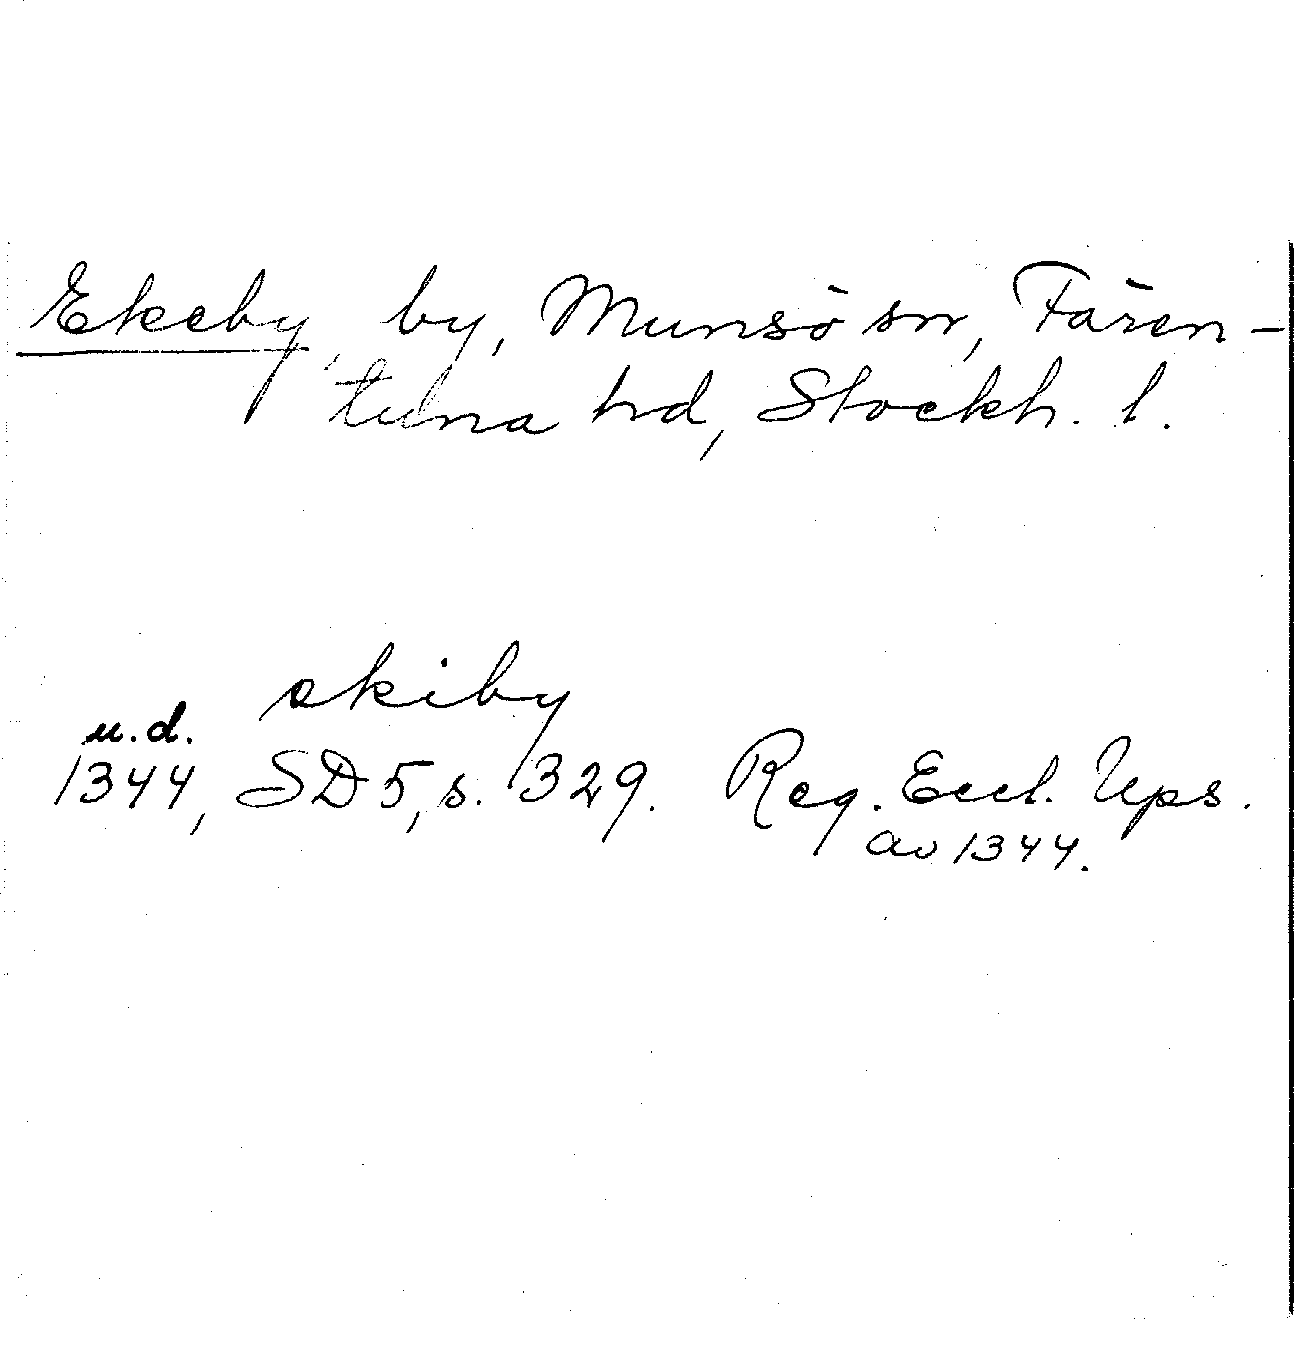 Ekeby, by, Munsö sn, Fären-
tuna hd, Stockh. l.
ekiby
u.d.
1344, SD 5, s. 329. Reg. Eccl. Ups.
av 1344.